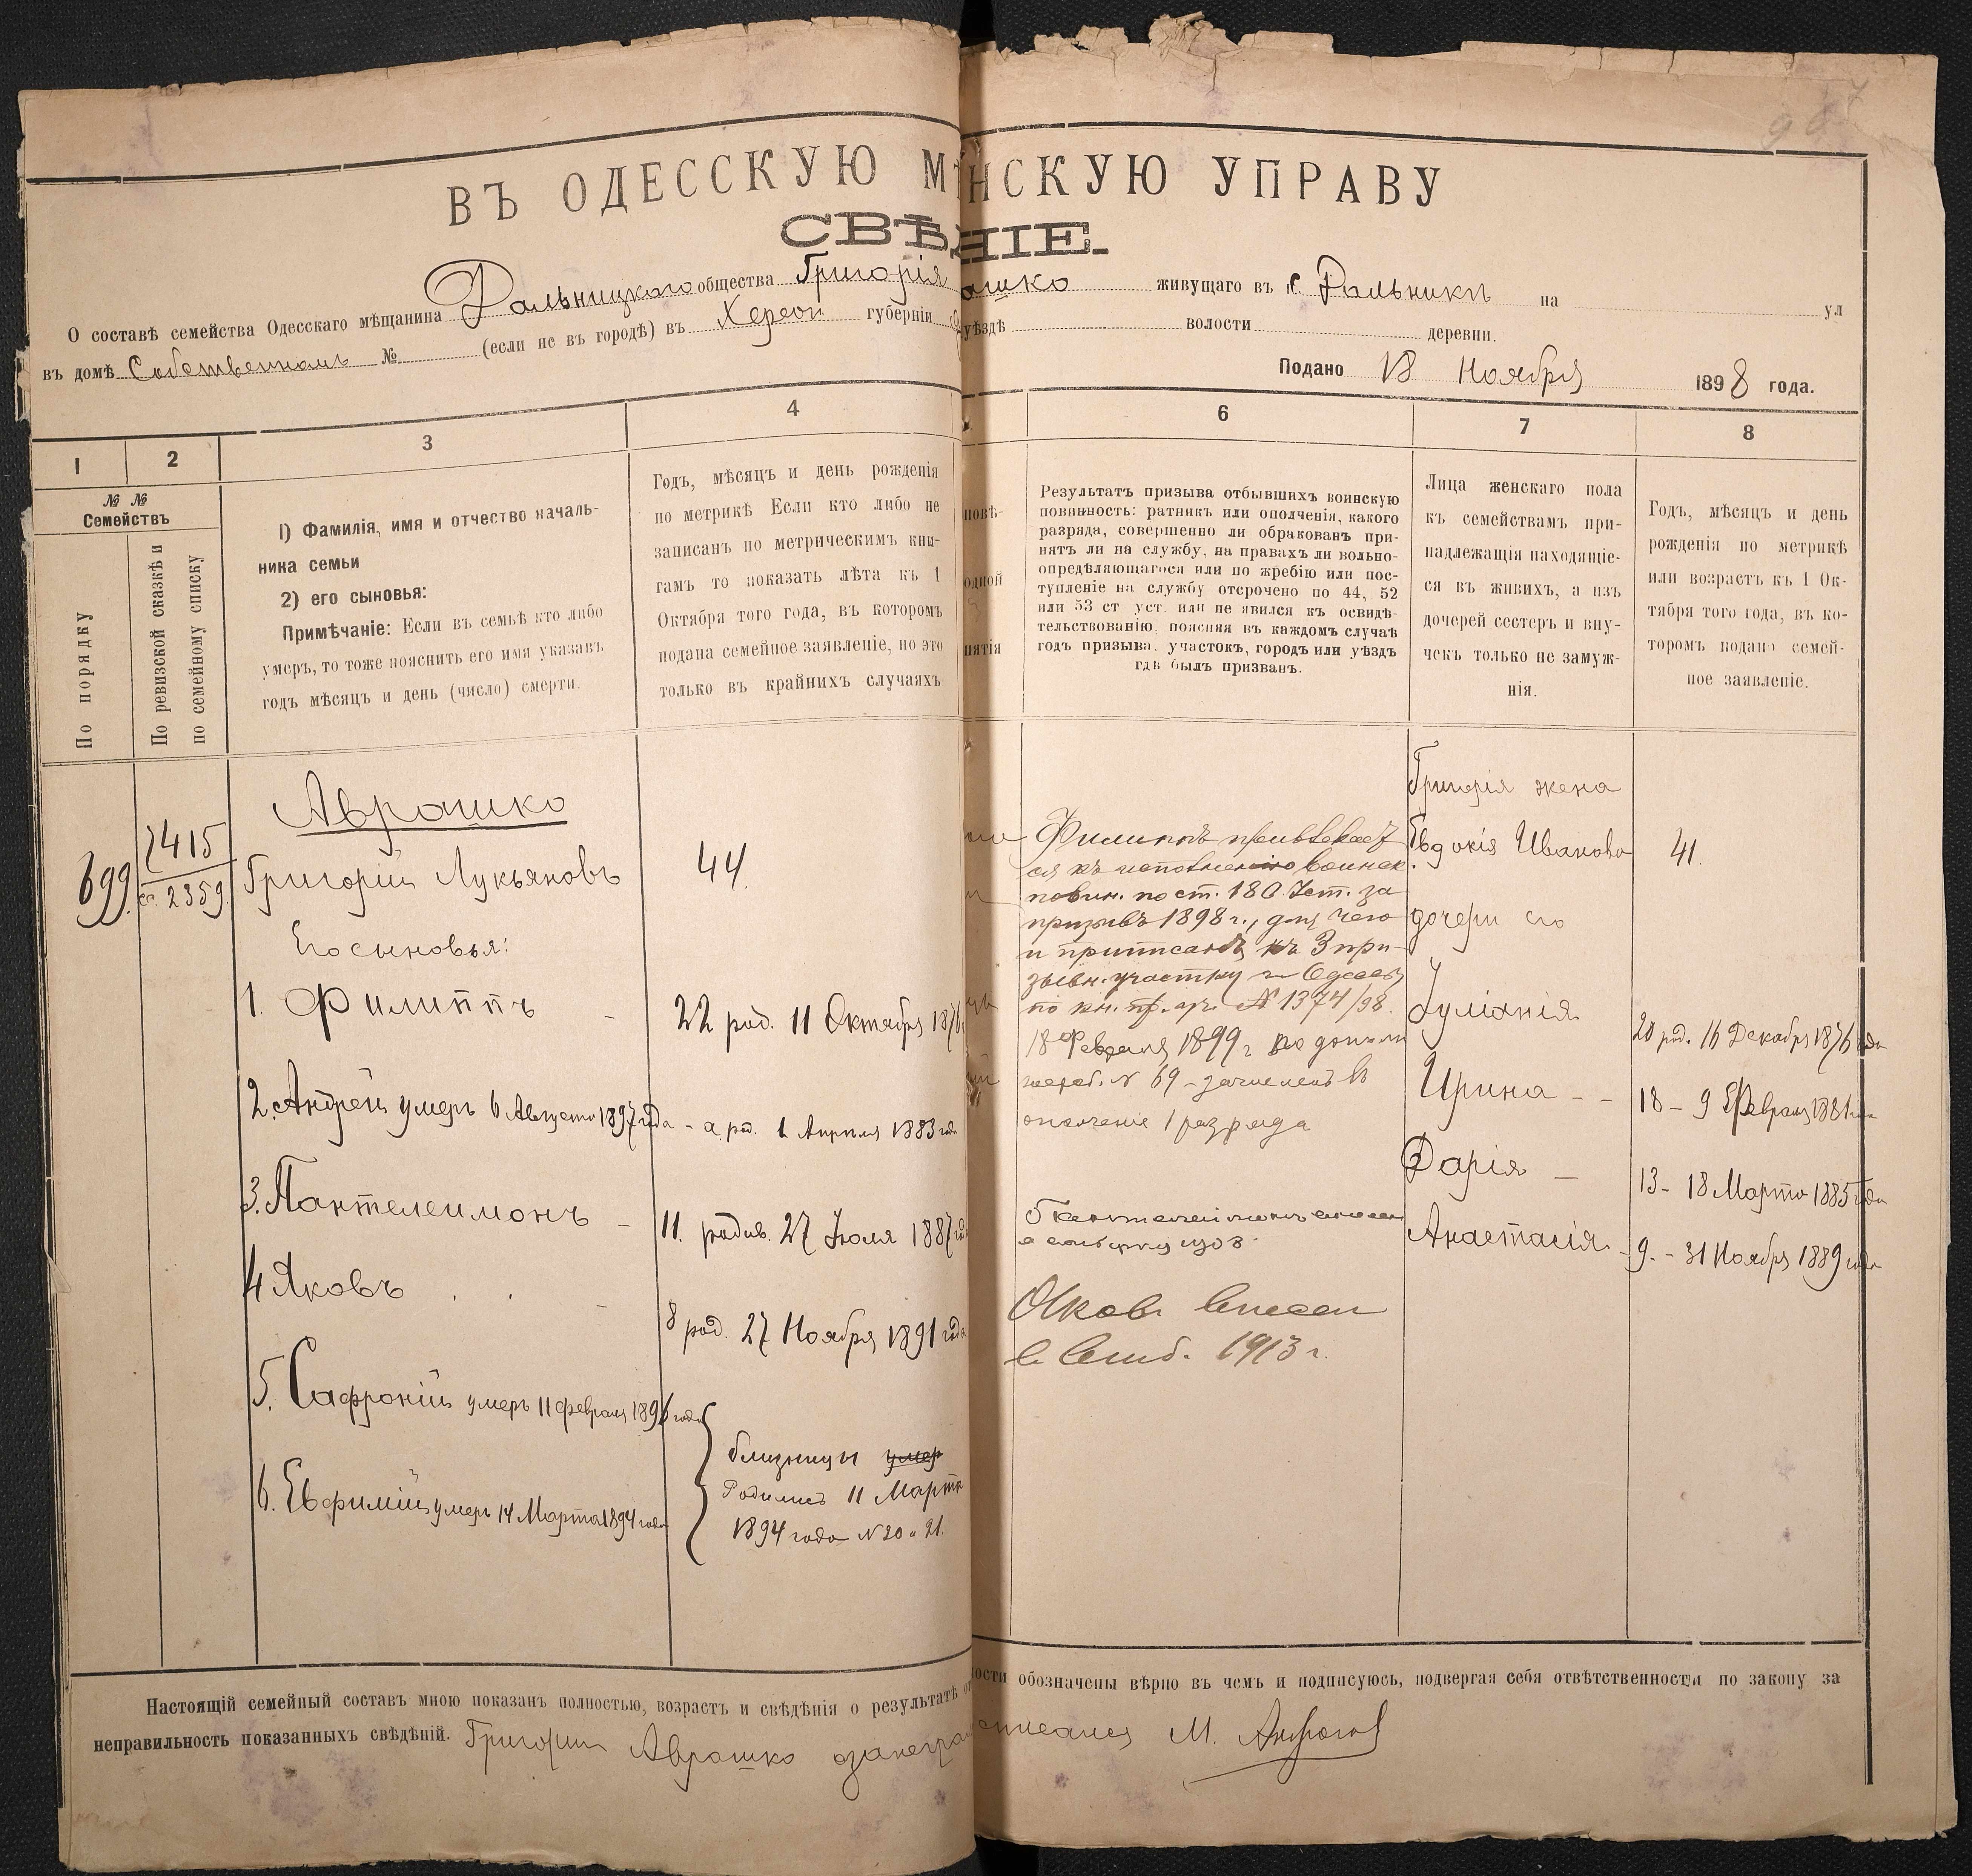 ВЪ ОДЕССКУЮ НСКУЮ УПРАВУ
СВѢ НІЕ.
О составѣ семейства Одесскаго мѣщанина Дальницкаго общества Григорія ашко живущаго въ с. Дальники на ул
въ домѣ Собственномъ № (если не въ городѣ) въ Херсон губерніи уѣздѣ волости деревни.
Подано 18 Ноября 1898 года.
1 2 3 4 6 7 8
№ №
Семействъ
По порядку
По ревизской сказкѣ и
по семейному списку
1) Фамилія, имя и отчество началь-
ника семьи
2) его сыновья:
Примѣчаніе: Если въ семьѣ кто либо
умеръ, то тоже пояснить его имя указавъ
годъ мѣсяцъ и день (число) смерти.
Годъ, мѣсяцъ и день рожденія
по метрикѣ Если кто либо не
записанъ по метрическимъ кни-
гамъ то показать лѣта къ 1
Октября того года, въ которомъ
подана семейное заявленіе, но это
только въ крайнихъ случаяхъ
повѣ-
одной
нятія
Результатъ призыва отбывшихъ воинскую
повинность: ратникъ или ополченія, какого
разряда, совершенно ли обракованъ при-
нятъ ли на службу, на правахъ ли вольно-
опредѣляющагося или по жребію или пос-
тупленіе на службу отсрочено по 44, 52
или 53 ст уст. или не явился къ освидѣ-
тельствованію, поясняя въ каждомъ случаѣ
годъ призыва, участокъ, городъ или уѣздъ
гдѣ былъ призванъ.
Лица женскаго пола
къ семействамъ при-
надлежащія находящіе-
ся въ живихъ, а изъ
дочерей сестеръ и вну-
чекъ только не замуж-
нія.
Годъ, мѣсяцъ и день
рожденія по метрикѣ
или возрастъ къ 1 Ок-
тября того года, въ ко-
торомъ подано семей-
ное заявленіе.
699
2415
2359
Аврашко
Григорій Лукьяновъ
44.
Его сыновья:
1. Филиппъ - 22 род. 11 Октября 1876
2. Андрей умеръ 6 Августа 1897 года - а род. 1 Апрѣля 1883 года
3. Пантелеимонъ - 11. родив. 27 Іюля 1887 года
4 Яковъ - 8 род. 27 Ноября 1891 года
5. Сафроній умеръ 11 февраля 1896 года
6. Евфимій умеръ 14 Марта 1894 года
близнецы умер
Родились 11 Марта
1894 года N 20 и 21.
Филиппъ привлекает
ся къ исполненію воинск.
повин. по ст. 180 Уст. за
призывъ 1898 г., для чего
и приписанъ къ 3 при-
зывн. участку г. Одессы
по кн. пр. уч. № 1374/98.
18 Февраля 1899 г. по
жереб. N 69 - зачисленъ въ
ополченіе 1 разряда
Яковъ внесен
в 1913 г.
Григорія жена
Евдокія Иванова 41.
дочери его
Іуліанія 20 род. 16 Декабря 1876 года
Ирина - - 18 - 9 Февраля 1881 года
Дарія - 13 - 18 Марта 1885 года
Анастасія - 9. - 31 Ноября 1889 года
Настоящій семейный составъ мною показанъ полностью, возрастъ и свѣдѣнія о результатѣ ности обозначены вѣрно въ чемъ и подписуюсь, подвергая себя отвѣтственности по закону за
неправильность показанныхъ свѣдѣній. Григорій Аврашко а за неграм М.